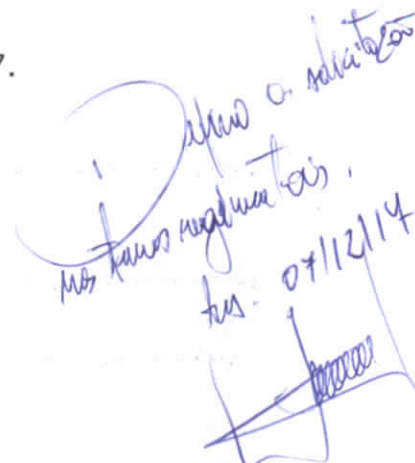 .
Defiro a solicitação
nos termos regimentais.
07/12/17